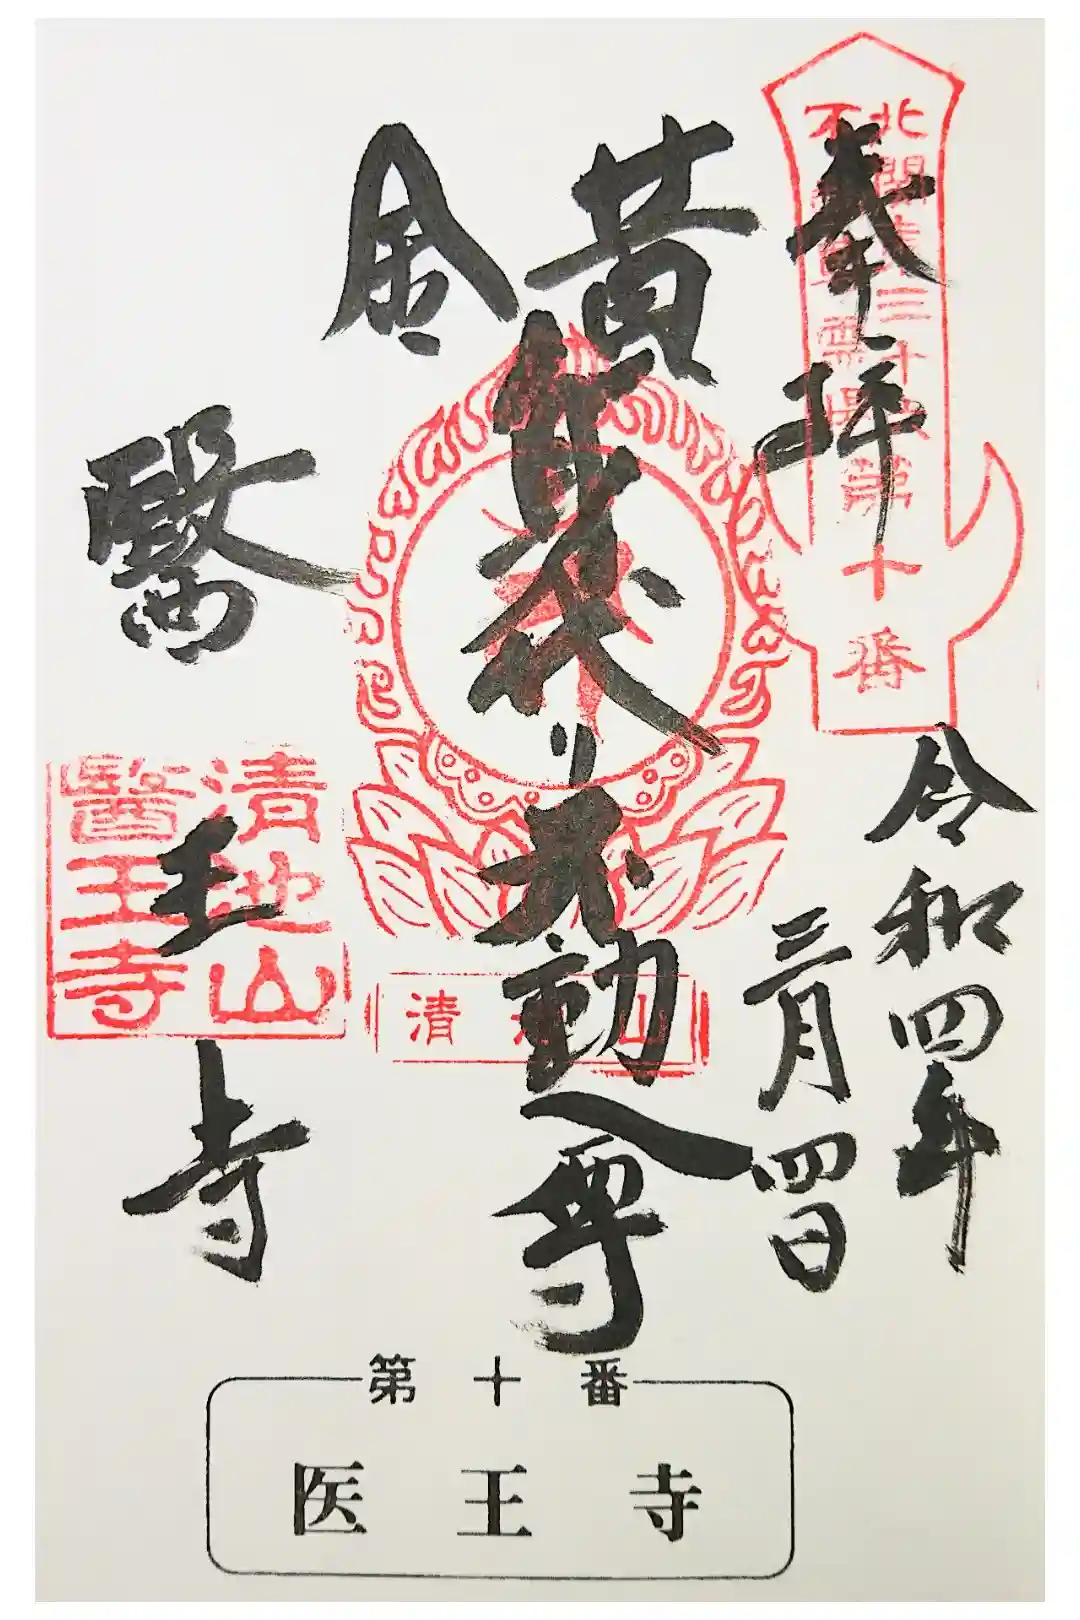 奉拝
北関東三十六 第十番
不動尊霊場
令和四年
三月四日
黄金
身代り不動尊
清滝山
醫王寺
清滝山
醫王寺
第十番
医王寺